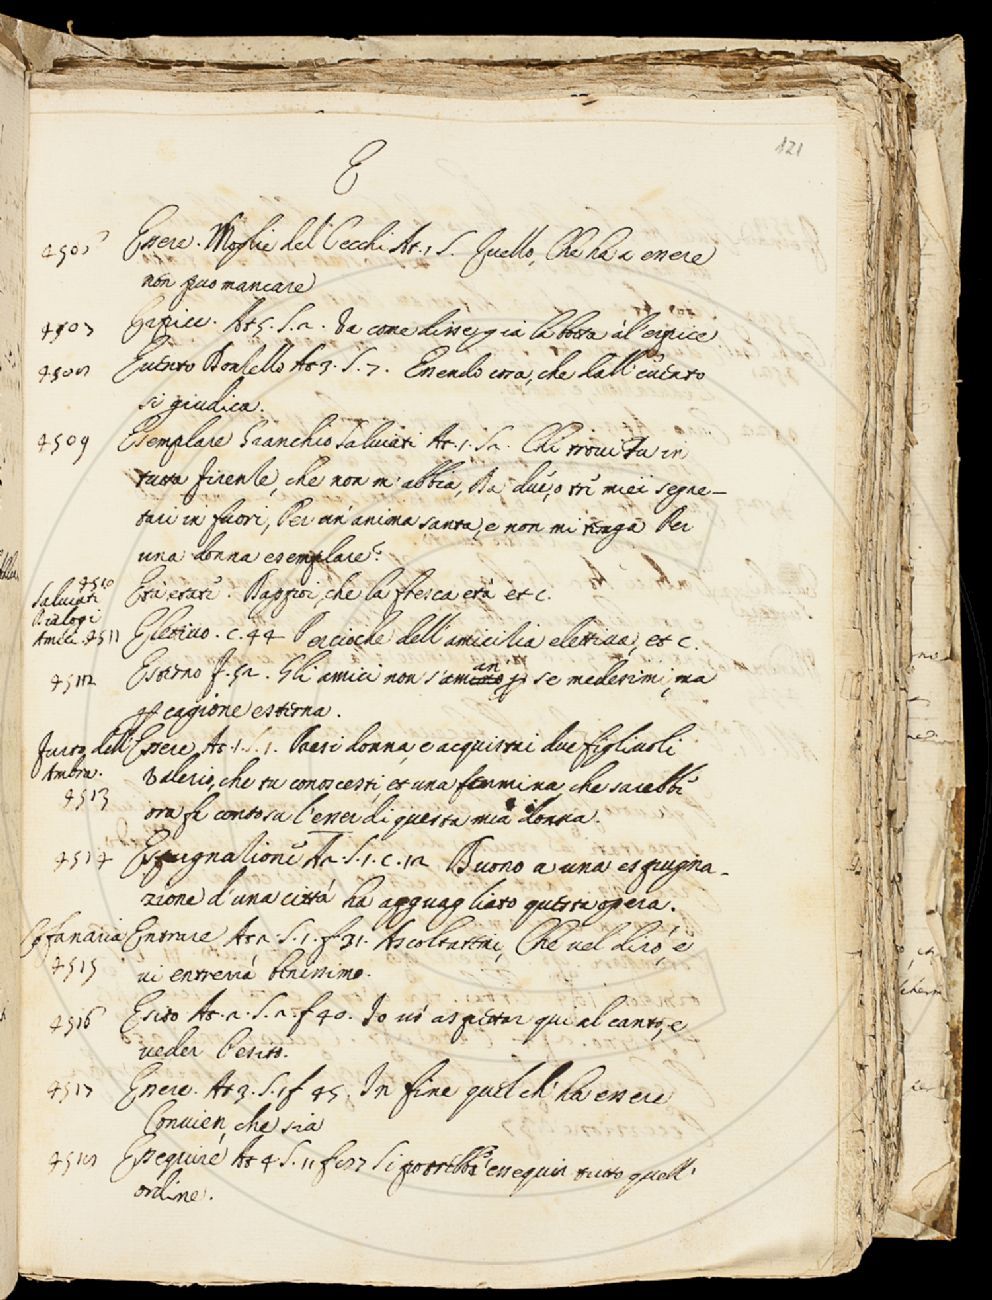 121
E
4506 Essere. Moglie del Cecchi At. 1 S. Quello, Che ha a essere
non puo mancare
4507 Erpice. At 5. S. 2. Va come disse già la botta al erpice
4508 Euento Donzello At 3. S. 7. Essendo cosa, che dall' euento
si giudica.
4509 Esemplare Granchio Saluiati At. 1. S 2. Chi troui tu in
tutta firenze, che non m' abbia, Da due, o tre miei segre-
tari in fuori, Per un' anima santa, e non mi tenga Per
una donna esemplare?
4510 Età etati. che la fresca età et c.
Saluiati
Dialogo
Amic. 4511 Elettiuo. c. 44 Percioche dell' amicizia elettiua, et c.
4512 Esterno f. 52. Gli amici non s'aman p se medesimi, ma
p cagione esterna.
furto, dell' Essere At. 1. S. 1. Presi donna, e acquistai due figliuoli
Ambra. Valerio, che tu conoscesti, et una femmina che sarebbe
4513 ora fe conto su l'esser di questa mia donna.
4514 Espugnalione A 2. S. 1. c. 12 Buono a una espugna-
zione d'una città ha apguagliato questa opera.
Cofanaria Entrare At 2. S. 1. f 31. Ascoltattai, Che uel dirò, e
4515 ui enterrà benissimo.
4516 Esito At. 2. S. 2. f 40. Io uò aspettar qui al canto, e
ueder l'esito.
4517 Essere. At 3. S. 1 f 45. In fine quel ch' ha essere
Conuien, che sia
4518 Esseguire At 4 S. 11 Si potrebbe esseguir tutto quell'
ordine.